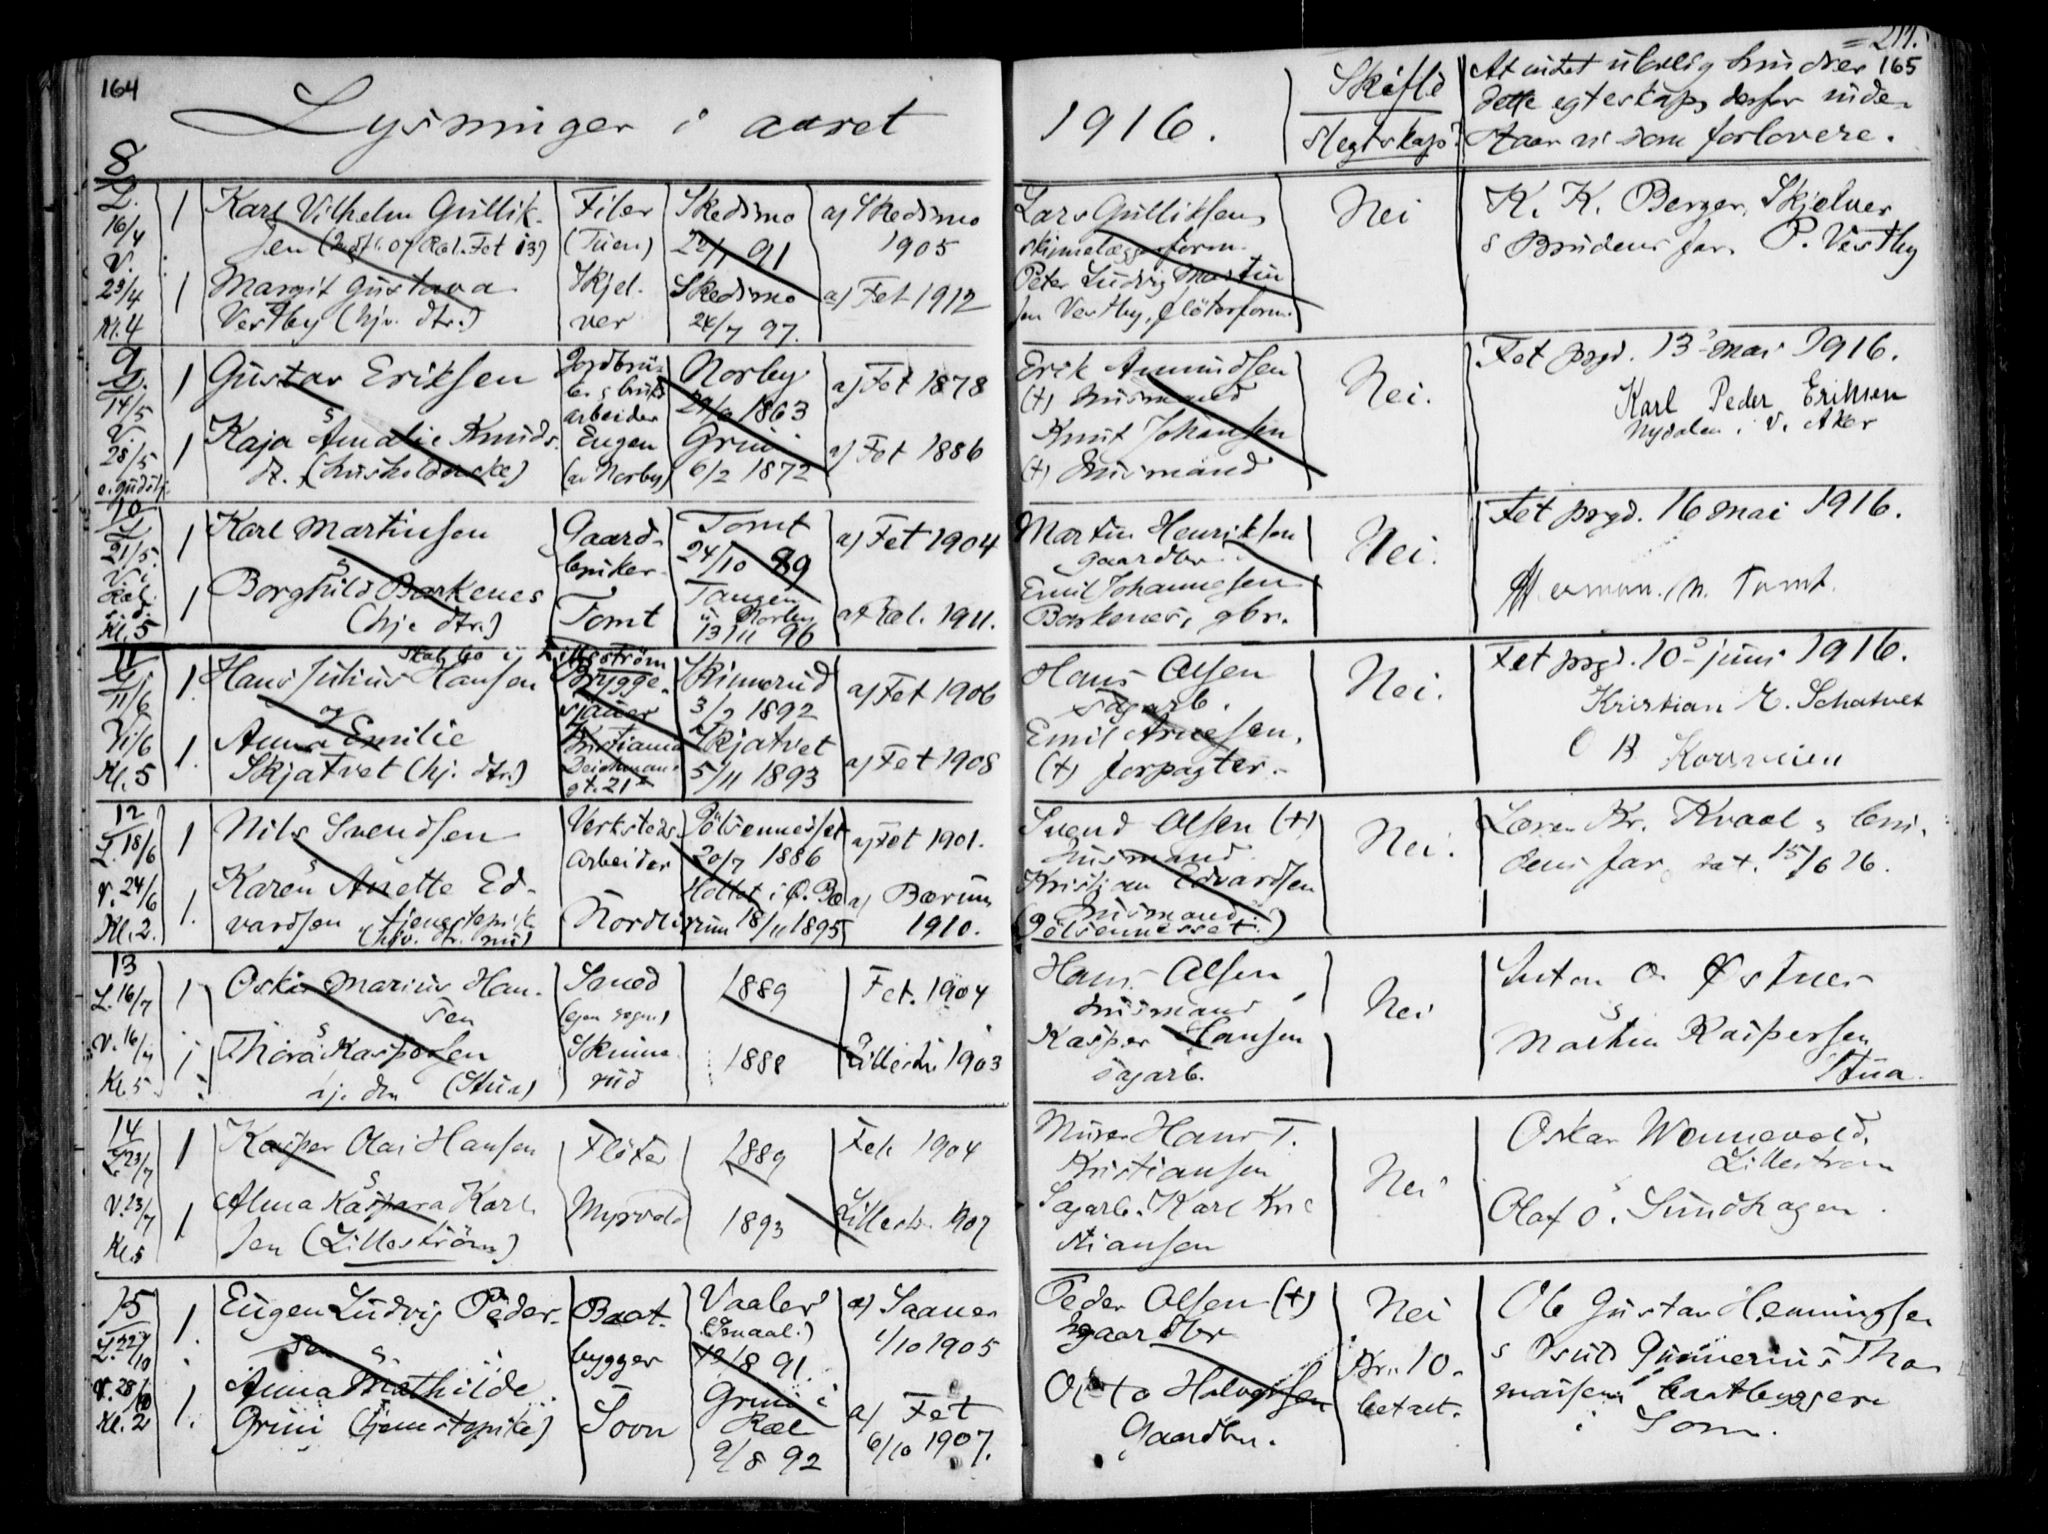 164
Lysninger i aaret
1916.
Skifte
Slegtskap?
211.
165
At intet ulovlig hindrer
dette egteskap, derfor inde-
staar vi som forlovere.
8
L. 16/4 V. 23/4 Kl. 4
1 Karl Vilhelm Gullik-
sen
1 Margit Gustava
Vestby (hj. dtr.)
Filer
(Tuen)
Skjel-
ver
Skedsmo
91
Skedsmo
24/7 97.
a) Skedsmo
1905
a) Fet 1912
Lars Gulliksen
Peter Ludvig Martin
sen Vestby, fløterform.
Nei
K. K. Berger, Skjelver
& Brudens far. P. Vestby
9
L. 14/5 V. 28/5 e. gudstj.
1 Gustav Eriksen
&
1 Kaja Amalie Knuds-
dt.
Jordbru-
arbeider
Eugen
(av Norby)
Norby
1863
Grini
6/2 1872
a) Fet 1878
a) Fet 1886
Erik Amundsen
(+) Husmand
Knut Johansen
(+) Husmand
Nei.
Fet prgd. 13 mai 1916.
Karl Peder Eriksen
Nydalen, V. Aker
10
L. 21/5. V. i Ral. Kl. 5
1 Karl Martinsen
&
1 Borghild Barkenes
(hj. dtr.)
Gaard-
bruker
Tomt
Tomt
24/10 89
Tangen
u Norby
13/11 96
a) Fet 1904
a) Ræl. 1911.
Martin Henriksen
gaardbr.
Emil Johannesen
Barkenes, gbr.
Nei.
Fet prgd. 16 mai 1916.
Herman M. Tomt.
11
L. 11/6 Kl. 5
skal bo i Lillestrøm
1. Hans Julius Hansen
og
1. Anna Emilie
Skjatvet (hj. dtr.)
Brygge-
sjauer
Kristiania
Deichmans
gt. 21
Skinnerud
3/2 1892
Skjatvet
5/11 1893
a) Fet 1906
a) Fet 1908
Hans Olsen
sagarb.
Emil Arnesen,
(+) forpagter.
Nei.
Fet prgd. 10 juni 1916.
Kristian E. Schatvet
O B Korsveien
12
L. 18/6 V. 24/6 Kl. 2.
1 Nils Svendsen
&
1. Karen Anette Ed-
vardsen tjenestepike
Verksteds
arbeider
Nordli
Pölsennesset
20/7 1886
Hollet i Ø. Bæ
rum 18/11 1895
a) Fet 1901.
a) Bærum
1910.
Svend Olsen (+)
husmand.
Kristian Edvardsen
husmand
(Pölsennesset.)
Nei.
Loren Kr. Kvaal & bru-
dens far, dat. 15/6 16.
13
L. 16/7 V. 16/7 Kl. 5
1 Oskar Marius Han-
sen
&
1 Thora Kaspersen
hj. dtr (Stua)
Smed
(egen regn.)
Skinne-
rud
1889
1888
Fet. 1904
Lillestr. 1903
Hans Olsen
husmand
Kasper Hansen
sagarb.
Nei
Anton O. Østner
&
Martin Kaspersen
Stua.
14
L. 23/7 V. 23/7 Kl. 5
1 Kasper Olai Hansen
&
1 Alma Kaspara Karl
sen (Lilleström)
Fløter
Myrvold
1889
1893
Fet 1904
Lillestr. 1907
Murer Hans T.
Kristiansen
Sagarb. Karl Kri
stiansen
Nei
Oskar Wennevold,
Lillestrøm
&
Olaf O. Sundhagen.
15
L. 22/10 V. 28/10 Kl. 2
1. Eugen Ludvig Peder-
sen &
1. Anna Mathilde
Grini (tjenestepike)
Baat-
bygger
Sovn
Vaaler
(Smaal.)
19/8 91.
Grini i
Ræl.
9/8 92
a) Saaner
1/10 1905
a) Fet
6/10 1907.
Peder Olsen (+)
gaardbr
Otto Halvorsen
Gaardbr.
Nei
Kr. 10.
betalt.
Ole Gustav Hemmingsen
& Knut Gunnerius Tho-
massen baatbyggere
i Son.